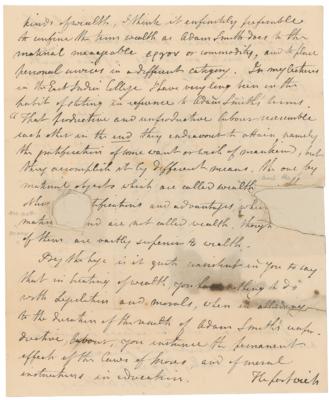 kinds of wealth, I think it infinitely preferable
to confine the term wealth as Adam Smith does to the
material manageable or commodity, and to place
personal services in a different category. In my lectures
in the East India College I have very long been in the
habit of stating in reference to Adam Smith's terms.
That productive and unproductive labours resemble
each other in the end they endeavour to attain, namely
the gratification of some want or wish of mankind, but
they accomplish it by different means, the one by
material objects which are called wealth
gratifications and advantages
and are not called wealth, though
of them are vastly superior to wealth.
By the bye is it quite consistent in you to say
that in treating of wealth, you have nothing to do
with legislation and morals, when in alluding
to the duration of the results of Adam Smith's unpro-
ductive labour, you instance the permanent
effects of the laws of Moses, and of moral
instructions in education.